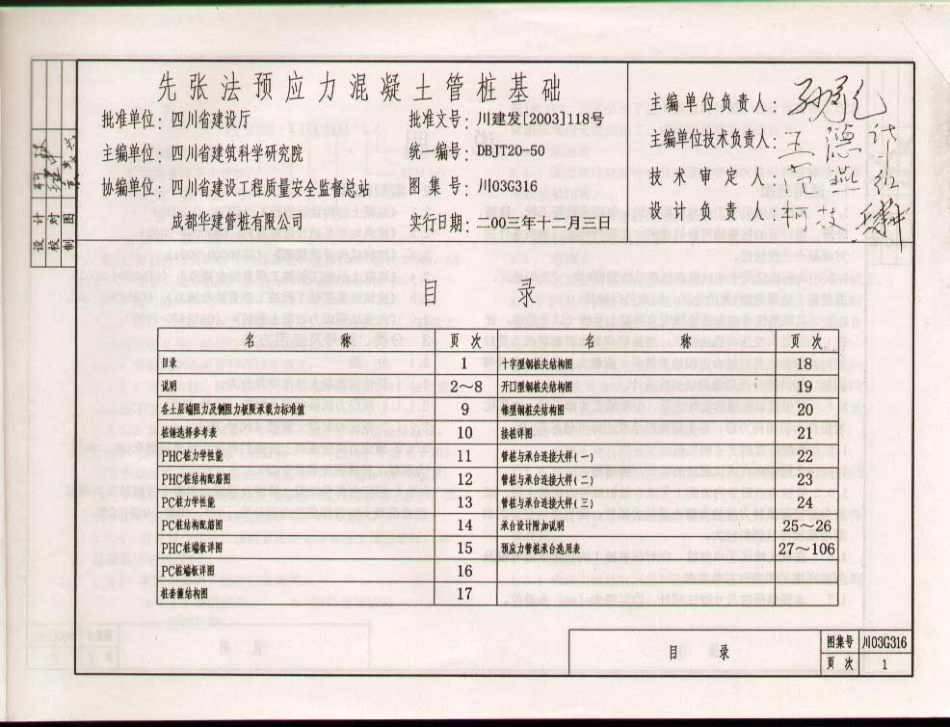 先张法预应力混凝土管桩基础
批准单位：四川省建设厅
批准文号：川建发[2003]118号
主编单位：四川省建筑科学研究院
统一编号：DBJT20-50
协编单位：四川省建设工程质量安全监督总站
图集号：川03G316
成都华建管桩有限公司
实行日期：二00三年十二月三日
主编单位负责人：
主编单位技术负责人：
技术审定人：
设计负责人：
设计
校对
制图
目录
名称 页次 名称 页次
目录 1 十字型钢桩尖结构图 18
说明 2～8 开口型钢桩尖结构图 19
各土层端阻力及侧阻力极限承载力标准值 9 锥型钢桩尖结构图 20
桩锤选择参考表 10 接桩详图 21
PHC桩力学性能 11 管桩与承台连接大样(一) 22
PHC桩结构配筋图 12 管桩与承台连接大样(二) 23
PC桩力学性能 13 管桩与承台连接大样(三) 24
PC桩结构配筋图 14 承台设计附加说明 25～26
PHC桩端板详图 15 预应力管桩承台选用表 27～106
PC桩端板详图 16
桩套箍结构图 17
目录 图集号 川03G316
页次 1